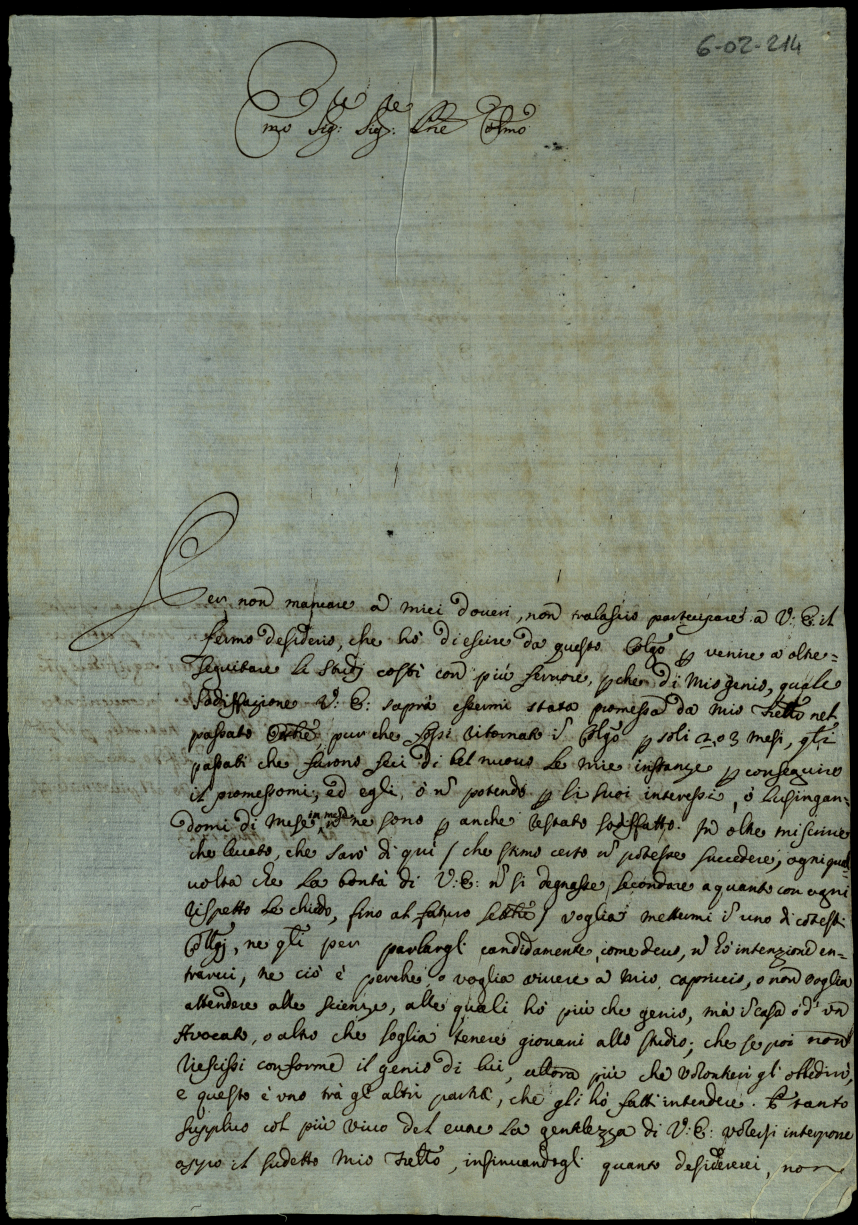 6-02-214
Ecc.mo Sig.re Sig.re Prne Col.mo
Per non mancare a miei doveri, non tralascio partecipare a V: E: il
fermo desiderio, che hò di escire da questo Collgo p venire a oltre=
seguitare li studj costì con più fervore, pche di mio genio, quale
sodisfazione V: E: saprà essermi stata promessa da mio Frello nel
passato 8bre, pur che fossi ritornato ĩ Collgo p soli 2, o 3 mesi, qli
passati che furono feci di bel nuovo le mie instanze p conseguire
il promessomi, ed egli, ò nō potendo p li suoi interessi, ò lusingan=
domi di mese in mese ne sono p anche restato sodisfatto. In oltre mi scrive
che levato, che sarò di quì / che stimo certo nō potesse succedere, ogni qual=
volta che la bontà di V: E: nō si degnasse secondare a quanto con ogni
rispetto le chiedo, fino al futuro 7bre / voglia mettermi ĩ uno di cotesti
Collgj, ne qli per parlargli candidamente, come devo, nō hò intenzione en=
trarvi, ne ciò è perche, o voglia vivere a mio capriccio, o non voglia
attendere alle scienze, alle quali hò più che genio, mà ĩ casa ò d' un
Avocato, o altro che soglia tenere giovani allo studio; che se poi non
riescissi conforme il genio di lui, allora più che volontieri gl' obbedirò,
e questo è uno trà gl' altri partiti, che gli hò fatti intendere. E tanto
supplico col più vivo del cuore la gentilezza di V: E: volersi interporre
appo il sudetto mio Frello, insinuandogli quanto desidererei, non